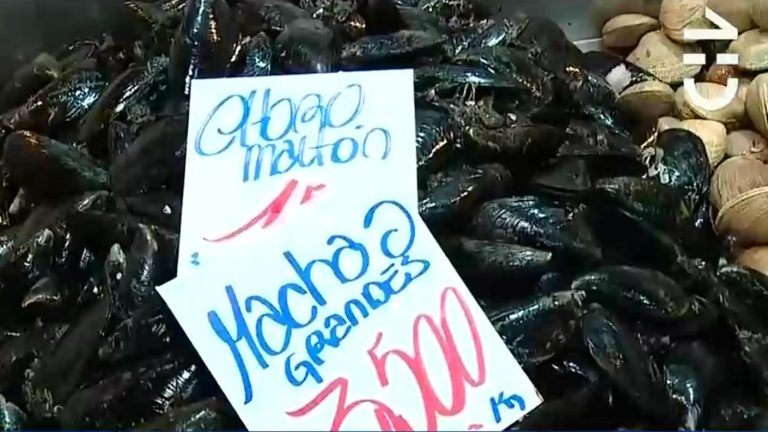 Choro
maltón
1ª
Macha2
GRANDES
3,500
Kg